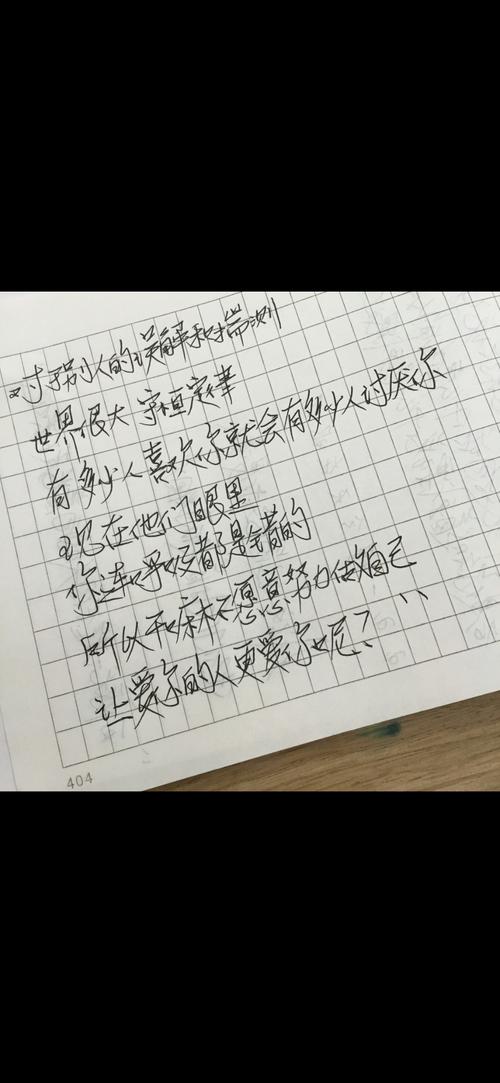 对于别人的误解和揣测
世界很大 宇宙定律
有多少人喜欢你就会有多少人讨厌你
现在他们眼里
你连呼吸都是错的
所以干嘛不愿意努力做自己
让爱你的人更爱你呢?
404